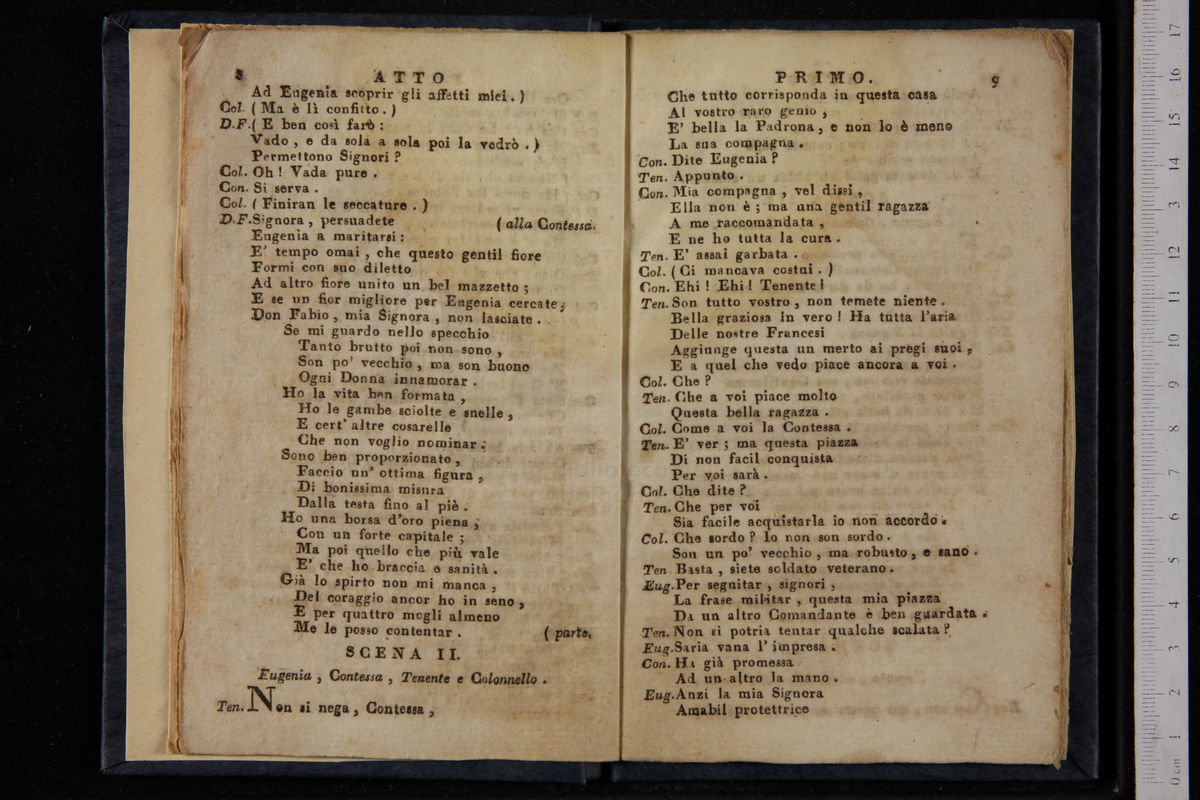 8 ATTO
Ad Eugenia scoprir gli affetti miei. )
Col. ( Ma è lì confitto. )
D.F. ( E ben così farò :
Vado, e da sola a sola poi la vedrò. )
Permettono Signori ?
Col. Oh ! Vada pure .
Con. Si serva .
Col. ( Finiran le seccature . )
D.F. Signora, persuadete ( alla Contessa.
Eugenia a maritarsi :
E' tempo omai, che questo gentil fiore
Formi con suo diletto
Ad altro fiore unito un bel mazzetto ;
E se un fior migliore per Eugenia cercate,
Don Fabio, mia Signora, non lasciate .
Se mi guardo nello specchio
Tanto brutto poi non sono ,
Son po' vecchio , ma son buono
Ogni Donna innamorar .
Ho la vita ben formata ,
Ho le gambe sciolte e snelle ,
E cert' altre cosarelle
Che non voglio nominar .
Sono ben proporzionato ,
Faccio un' ottima figura ,
Di bonissima misura
Dalla testa fino al piè .
Ho una borsa d'oro piena ,
Con un forte capitale ;
Ma poi quello che più vale
E' che ho braccia e sanità .
Già lo spirto non mi manca ,
Del coraggio ancor ho in seno ,
E per quattro mogli almeno
Me le posso contentar . ( parte.
SCENA II.
Eugenia , Contessa , Tenente e Colonnello .
Ten. Non si nega , Contessa ,
PRIMO. 9
Che tutto corrisponda in questa casa
Al vostro raro genio ,
E' bella la Padrona , e non lo è meno
La sua compagna .
Con. Dite Eugenia ?
Ten. Appunto .
Con. Mia compagna , vel dissi ,
Ella non è ; ma una gentil ragazza
A me raccomandata ,
E ne ho tutta la cura .
Ten. E' assai garbata .
Col. ( Ci mancava costui . )
Con. Ehi ! Ehi ! Tenente !
Ten. Son tutto vostro , non temete niente .
Bella graziosa in vero ! Ha tutta l'aria
Delle nostre Francesi
Aggiunge questa un merto ai pregi suoi ,
E a quel che vedo piace ancora a voi .
Col. Che ?
Ten. Che a voi piace molto
Questa bella ragazza .
Col. Come a voi la Contessa .
Ten. E' ver ; ma questa piazza
Di non facil conquista
Per voi sarà .
Col. Che dite ?
Ten. Che per voi
Sia facile acquistarla io non accordo .
Col. Che sordo ? Io non son sordo .
Son un po' vecchio , ma robusto , e sano .
Ten Basta , siete soldato veterano .
Eug. Per seguitar , signori ,
La frase militar , questa mia piazza
Da un altro Comandante è ben guardata .
Ten. Non si potria tentar qualche scalata ?
Eug. Saria vana l' impresa .
Con. Ha già promessa
Ad un altro la mano .
Eug. Anzi la mia Signora
Amabil protettrice
0 cm 1 2 3 4 5 6 7 8 9 10 11 12 13 14 15 16 17